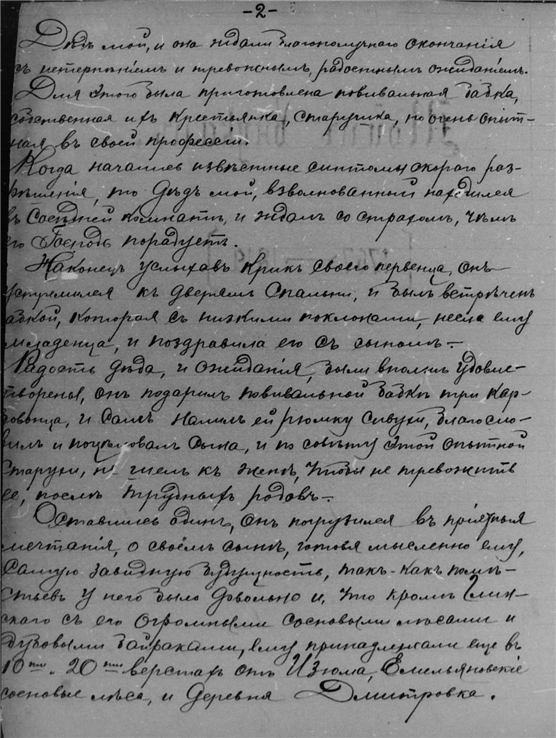 -2-
Дѣдъ мой, и она ждали благополучнаго окончанія
съ нетерпѣніемъ и тревожнымъ, радостнымъ ожиданіемъ.
Для этого была приготовлена повивальная бабка,
собственная ихъ крестьянка, старушка, но очень опыт-
ная въ своей профессіи.
Когда начались извѣстные симптомы скораго раз-
рѣшенія, то дѣдъ мой, взволнованный находился
въ сосѣдней комнатѣ, и ждалъ со страхомъ, чѣмъ
его Господь порадуетъ.
Наконецъ услыхавъ крикъ своего первенца, онъ
устремился къ дверямъ спальни, и былъ встрѣченъ
бабкой, которая съ низкими поклонами, несла ему
младенца, и поздравила его съ сыномъ.-
Радость дѣда, и ожиданія, были вполнѣ удовле-
творены, онъ подарилъ повивальной бабкѣ три кар-
бованца, и самъ налилъ ей рюмку сивухи, благосло-
вилъ и поцѣловалъ сына, и по совѣту этой опытной
старухи, не шелъ къ женѣ, чтобы не тревожить
ее, послѣ трудныхъ родовъ.-
Оставшись одинъ, онъ погрузился въ пріятныя
мечтанія, о своёмъ сынѣ, готовя мысленно ему,
самую завидную будущность, такъ-какъ помѣ-
стьевъ у него было довольно и, что кромѣ
скаго съ его огромными сосновыми лѣсами и
дубовыми байраками, ему принадлежали еще въ
10ти - 20ти верстахъ отъ Изюма, Емельяновскіе
сосновые лѣса, и деревня Дмитровка.